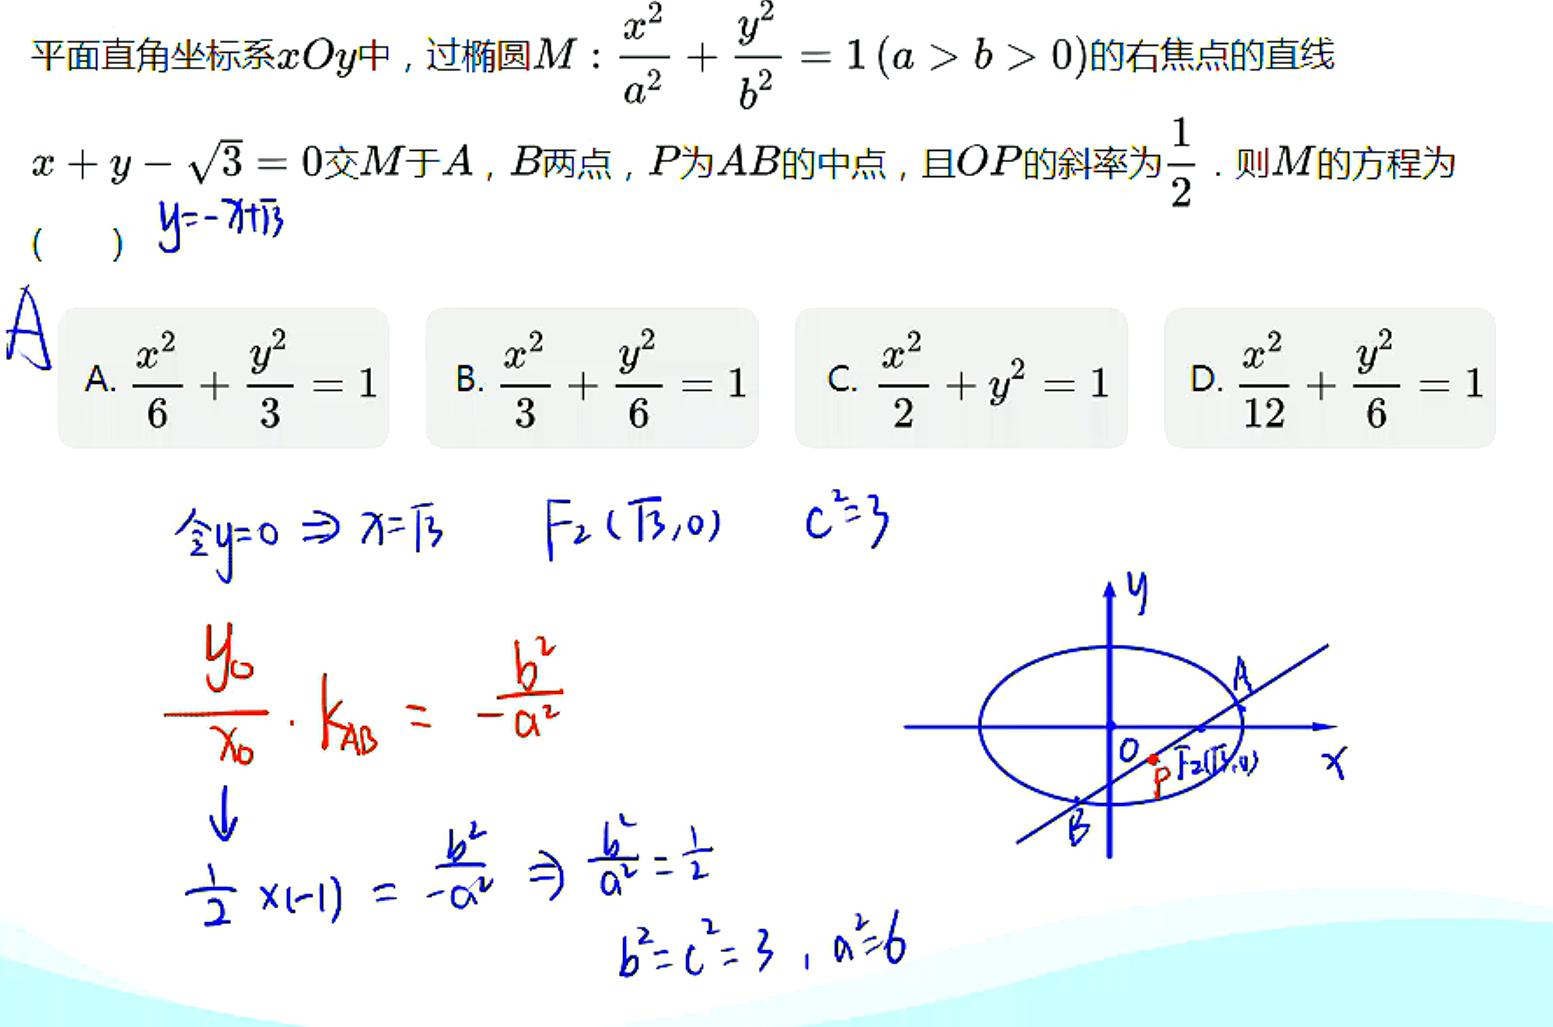 平面直角坐标系xOy中，过椭圆M：x²/a² + y²/b² = 1 (a > b > 0)的右焦点的直线
x + y − √3 = 0交M于A，B两点，P为AB的中点，且OP的斜率为1/2．则M的方程为
(    ) y=-x+√3
A
A. x²/6 + y²/3 = 1 B. x²/3 + y²/6 = 1 C. x²/2 + y² = 1 D. x²/12 + y²/6 = 1
令y=0 ⇒ x=√3 F₂(√3,0) c²=3
y₀/x₀ · k_AB = b²/-a²
↓
1/2 ×(-1) = b²/-a² ⇒ b²/a² = 1/2
b²=c²=3, a²=6
y
A
O
F₂(√3,0)
x
P
B